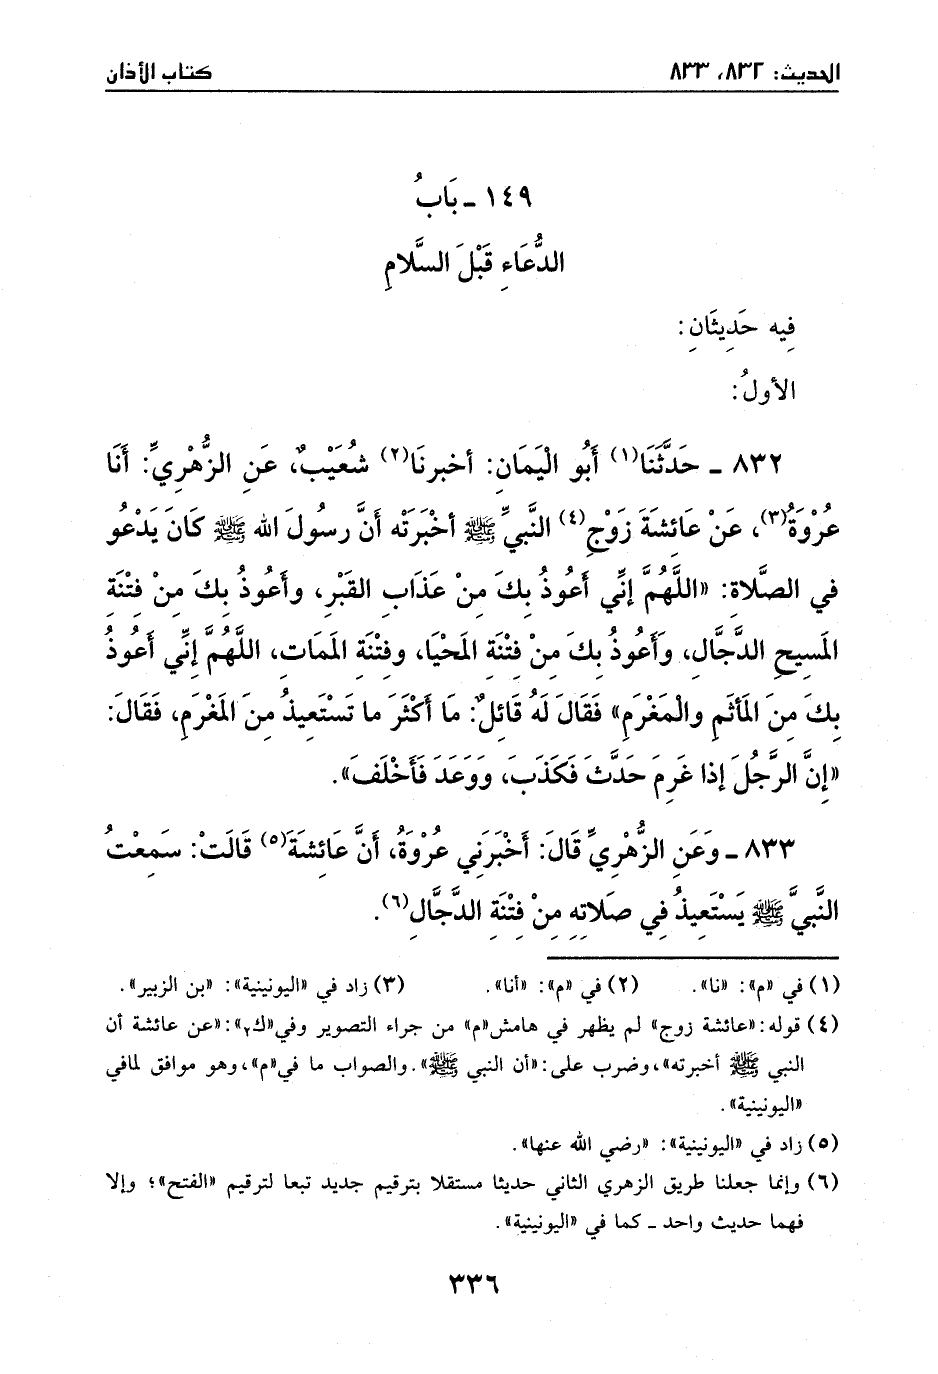 الحديث: ٨٣٢، ٨٣٣ كتاب الأذان
١٤٩ ـ بَابُ
الدُّعَاءِ قَبْلَ السَّلَامِ
فِيه حَدِيثَانِ:
الأولُ:
٨٣٢ ـ حَدَّثَنَا(١) أَبُو الْيَمَانِ: أخبرنَا(٢) شُعَيْبٌ، عَنِ الزُّهْرِيِّ: أَنَا
عُرْوَةُ(٣)، عَنْ عَائِشَةَ زَوْجِ(٤) النَّبِيِّ ﷺ أخْبَرَتْه أَنَّ رسُولَ الله ﷺ كَانَ يَدْعُو
فِي الصَّلَاةِ: «اللَّهُمَّ إنِّي أَعُوذُ بِكَ مِنْ عَذَابِ القَبْرِ، وأَعُوذُ بِكَ مِنْ فِتْنَةِ
المَسِيحِ الدَّجَّالِ، وَأَعُوذُ بِكَ مِنْ فِتْنَةِ المَحْيَا، وفِتْنَةِ المَمَاتِ، اللَّهُمَّ إنِّي أَعُوذُ
بِكَ مِنَ المَأثَمِ والْمَغْرَمِ» فَقَالَ لَهُ قَائِلٌ: مَا أَكْثَرَ ما تَسْتَعِيذُ مِنَ المَغْرَمِ، فَقَالَ:
«إنَّ الرَّجُلَ إذَا غَرِمَ حَدَّثَ فَكَذَبَ، وَوَعَدَ فَأَخْلَفَ».
٨٣٣ ـ وَعَنِ الزُّهْرِيِّ قَالَ: أَخْبَرَنِي عُرْوَةُ، أَنَّ عَائِشَةَ(٥) قَالَتْ: سَمِعْتُ
النَّبِيَّ ﷺ يَسْتَعِيذُ فِي صَلَاتِهِ مِنْ فِتْنَةِ الدَّجَّالِ(٦).
(١) في «م»: «نا». (٢) في «م»: «أنا». (٣) زاد في «اليونينية»: «بن الزبير».
(٤) قوله: «عائشة زوج» لم يظهر في هامش «م» من جراء التصوير وفي «ك٢»: «عن عائشة أن
النبي ﷺ أخبرته»، وضرب على: «أن النبي ﷺ». والصواب ما في «م»، وهو موافق لما في
«اليونينية».
(٥) زاد في «اليونينية»: «رضي الله عنها».
(٦) وإنما جعلنا طريق الزهري الثاني حديثا مستقلا بترقيم جديد تبعا لترقيم «الفتح»؛ وإلا
فهما حديث واحد ـ كما في «اليونينية».
٣٣٦